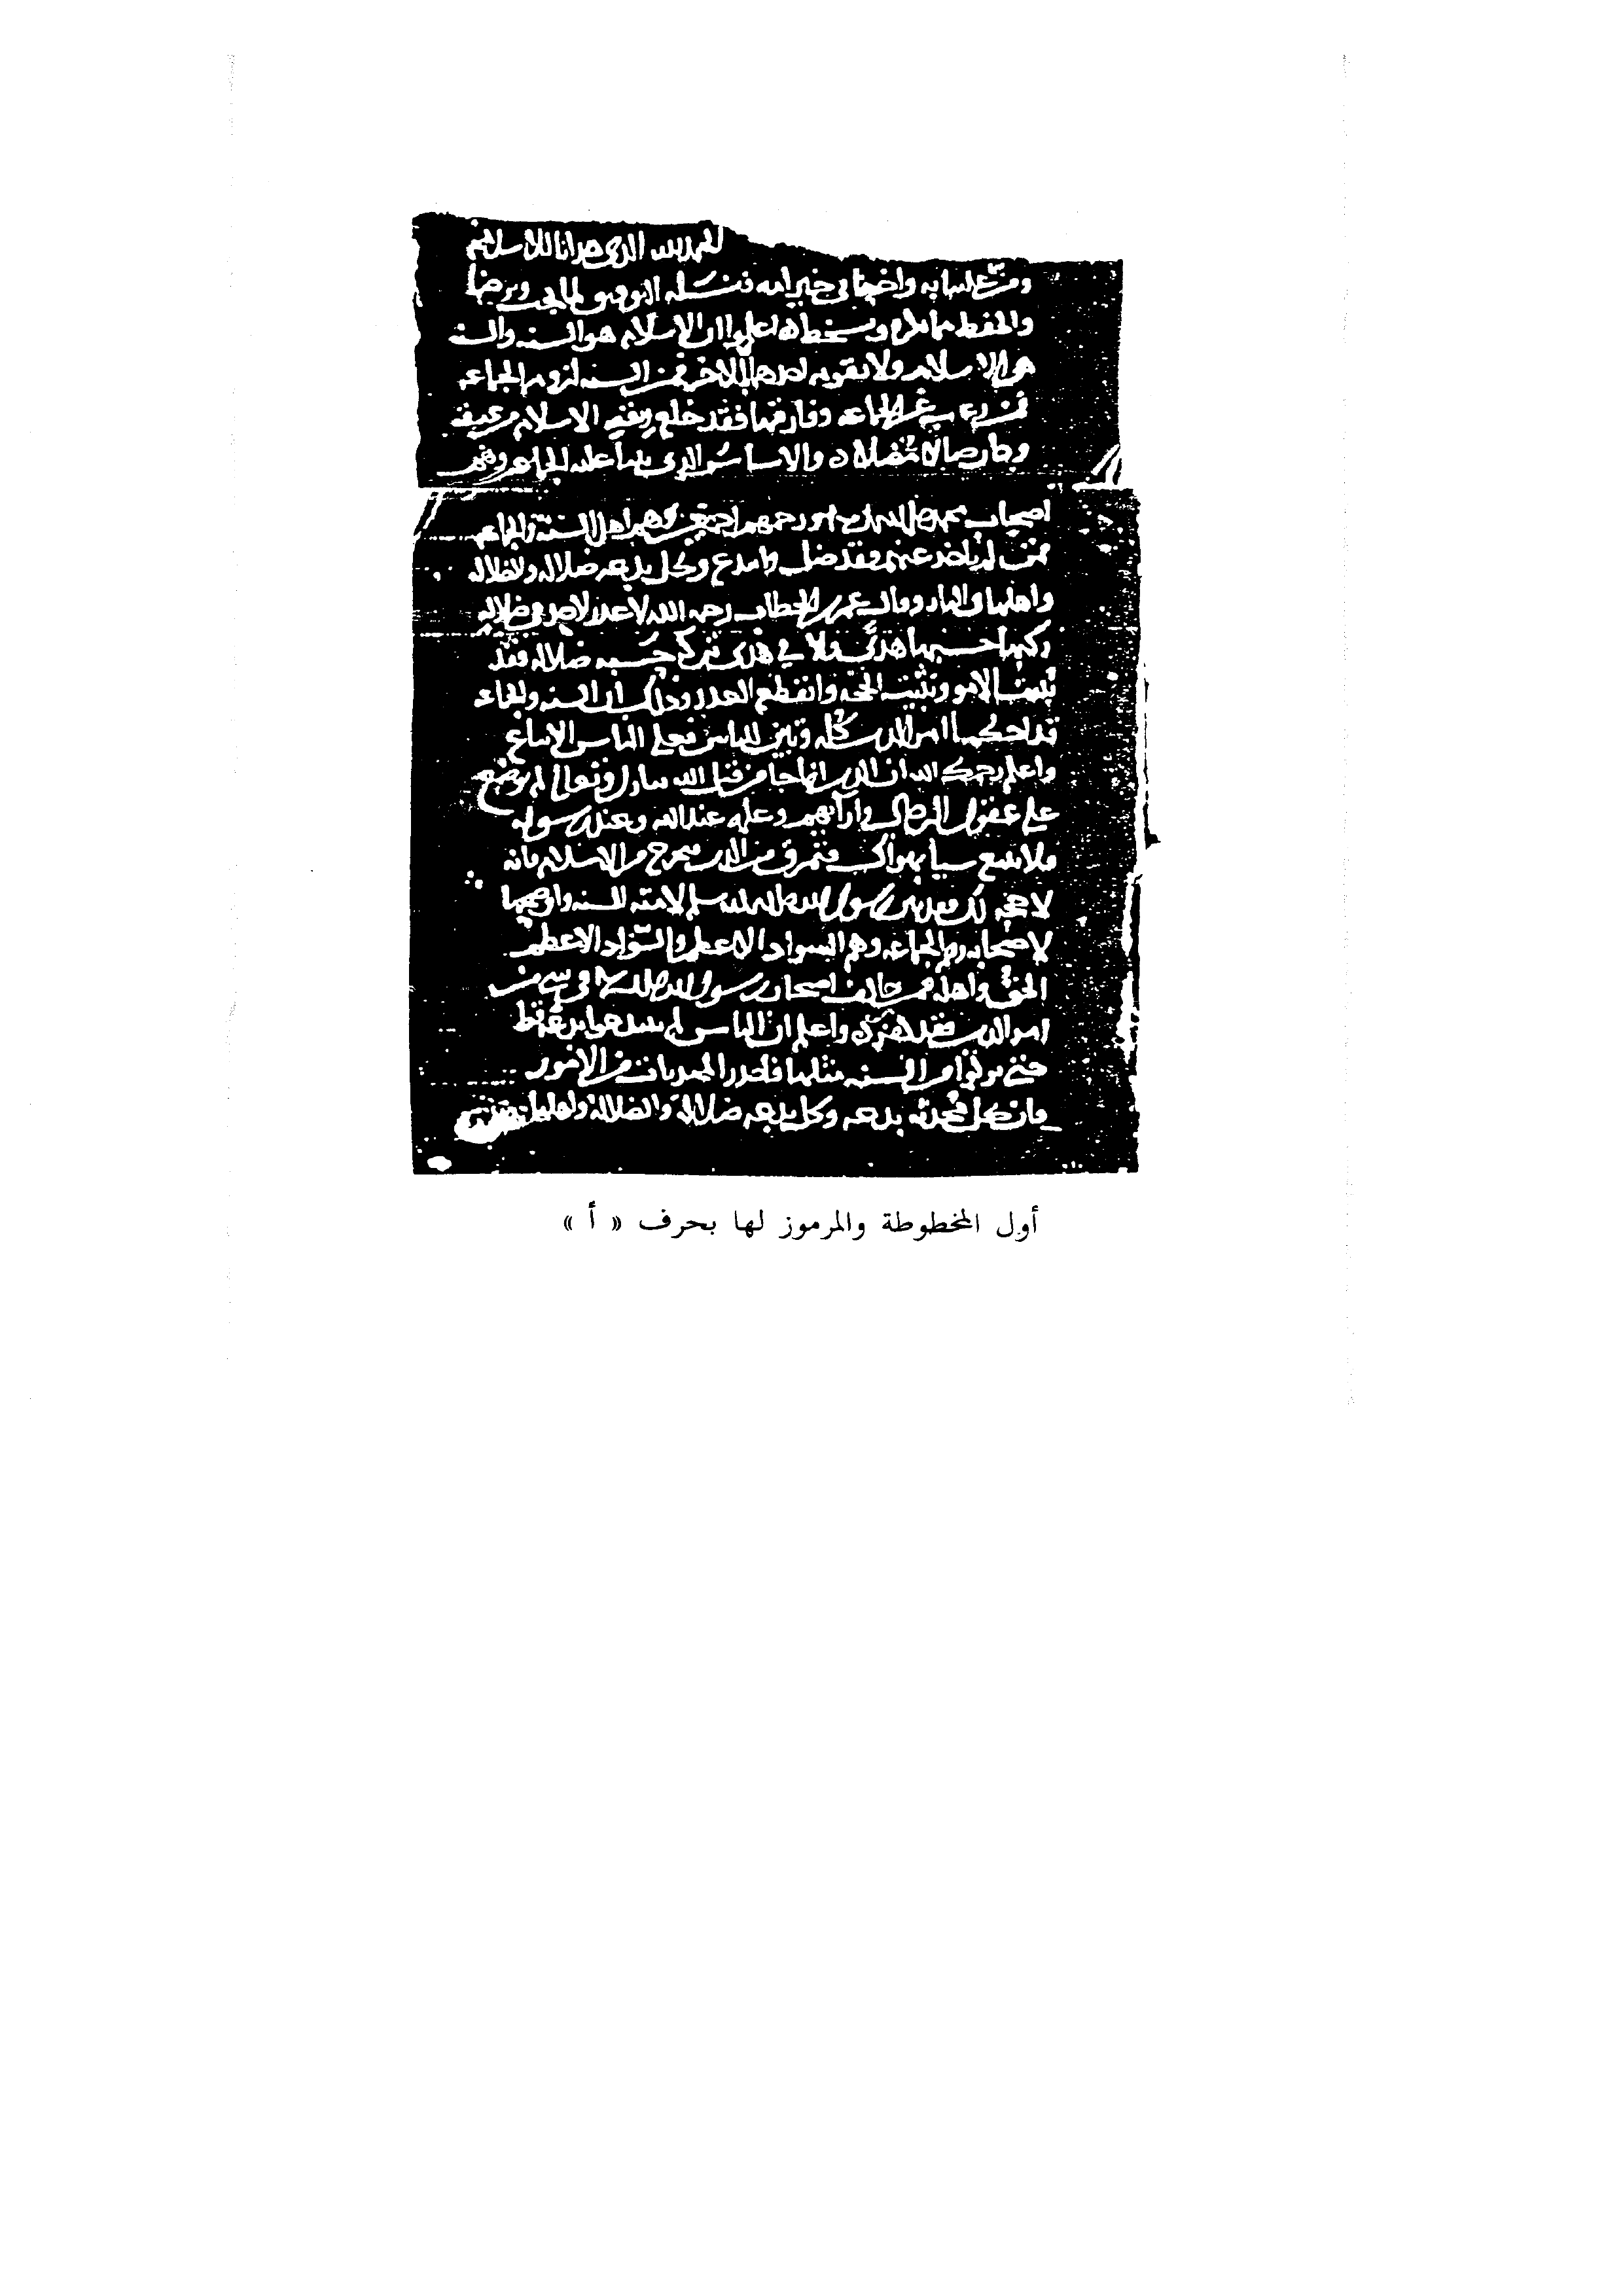 الحمد لله الذي هدانا للاسلام
ومن علينا به واخرجنا في خير امه فنسله التوفيق لما يحب ويرضا
والحفظ مما يكره ويسخط اعلموا ان الاسلام هو السنه والسنه
هي الاسلام ولا يقوم احدهما الا بالاخر فمن السنه لزوم الجماعه
فمن رغب غير الجماعه وفارقها فقد خلع ربقه الاسلام من عنقه
وكان ضالا مضلا والاساس الذي بينا عليه الجماعه وهم
اصحاب محمد صلى الله عليه ورحمهم اجمعين وهم اهل السنة والجماعه
فمن لم ياخذ عنهم فقد ضل وابتدع وكل بدعه ضلاله والضلاله
واهلها في النار وقال عمر بن الخطاب رحمه الله لا عذر لاحد في ضلاله
ركبها حسبها هدى ولا في هدى تركه حسبه ضلاله فقد
بينت الامور وثبتت الحجه وانقطع العذر وذلك ان السنه والجماعه
قد احكما امر الدين كله وتبين للناس فعلى الناس الاتباع
واعلم رحمك الله ان الدين انما جا من قبل الله تبارك وتعالى لم يوضع
على عقول الرجال وارآيهم وعلمه عند الله وعند رسوله
فلا تتبع شيا بهواك فتمرق من الدين فتخرج من الاسلام فانه
لا حجه لك فقد بين رسول الله صلى الله عليه وسلم لامته السنه واوضحها
لاصحابه وهم الجماعه وهم السواد الاعظم والسواد الاعظم
الحق واهله فمن خالف اصحاب رسول الله صلى الله عليه في شي من
امر الدين فقد كفر واعلم ان الناس لم يبتدعوا بدعة قط
حتى تركوا من السنه مثلها فاحذر المحدثات من الامور
فان كل محدثه بدعه وكل بدعه ضلالة والضلالة واهلها
أول المخطوطة والمرموز لها بحرف « أ »